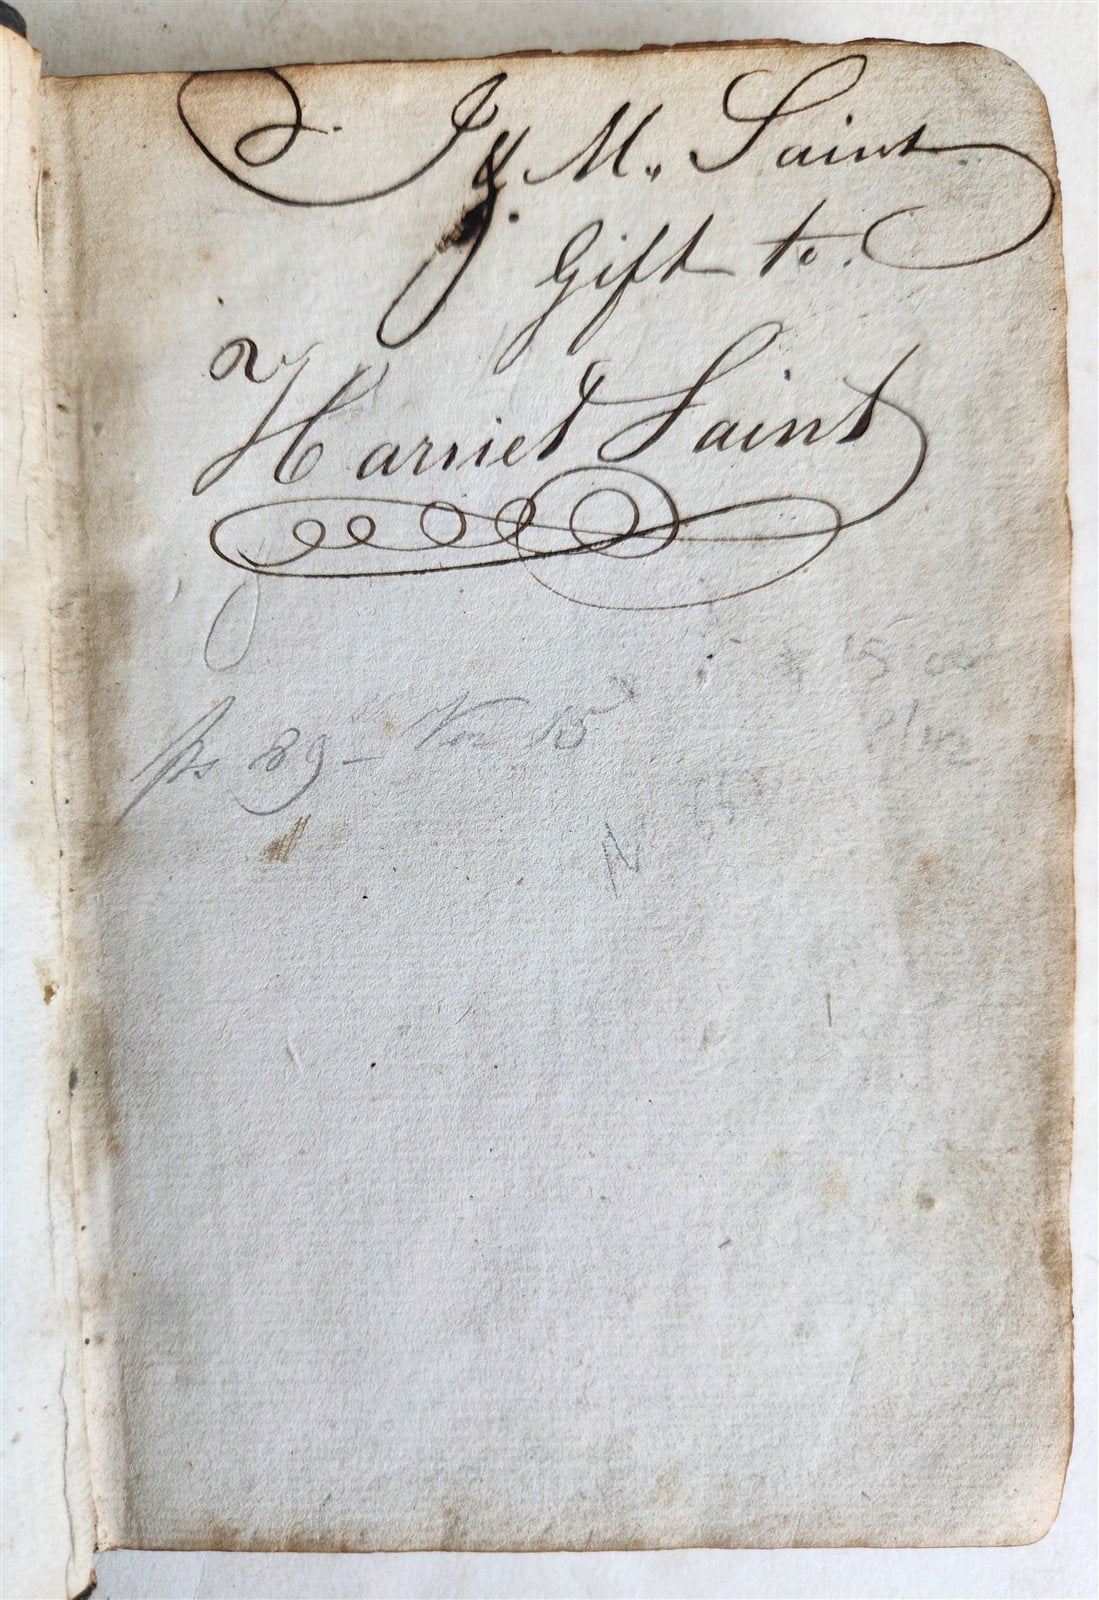 J. & M. Saint
Gift to.
Harriet Saint
Ps 89 – 15
N